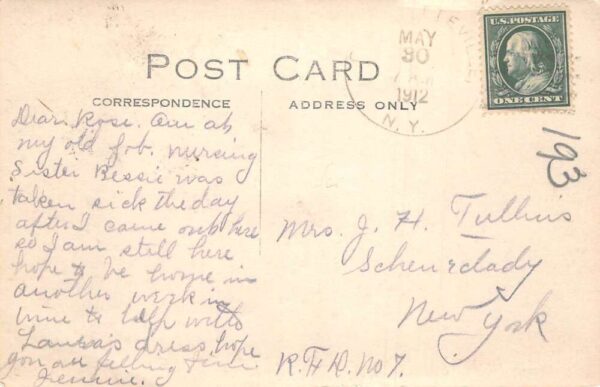 U.S. POSTAGE
ONE CENT
MAY
30
1912
N. Y.
POST CARD
CORRESPONDENCE
ADDRESS ONLY
193
Dear Rose. Am at
my old job. nursing
Sister Bessie was
taken sick the day
after I came out here
so I am still here
hope to be home in
another week in
time to help with
Laura's dress. hope
you are feeling fine
Jennie.
Mrs. J. H. Tullius
Schenectady
New York
R.F.D. No 7.